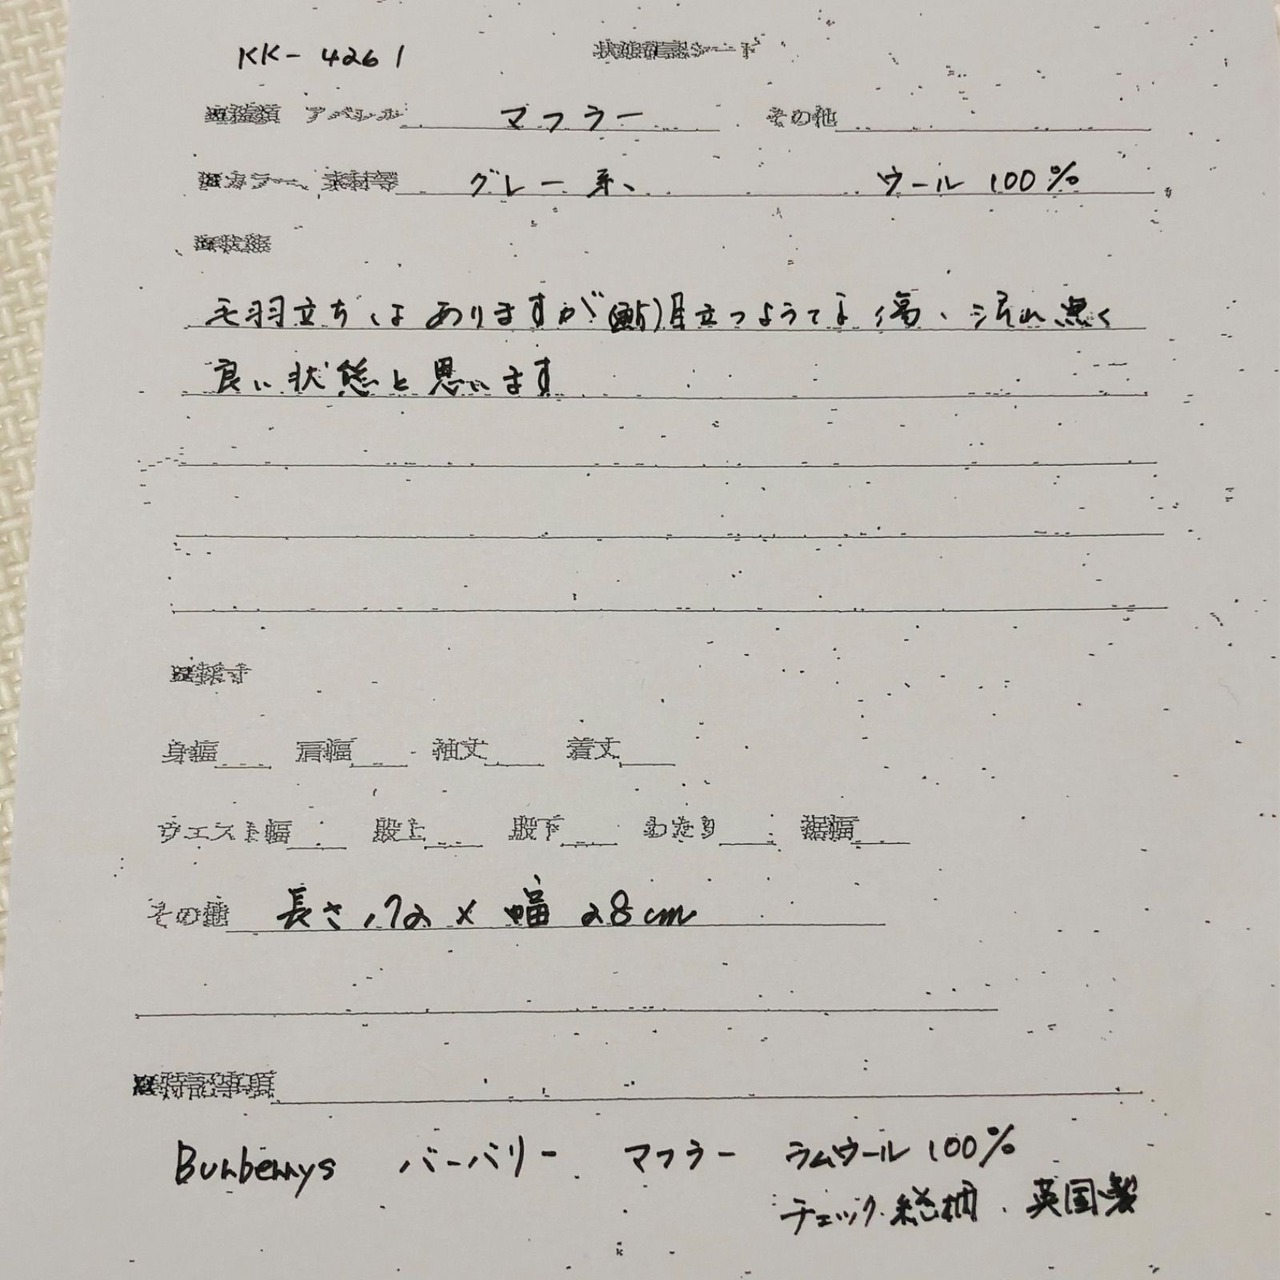 KK-4261 状態確認シート
※種類 アパレル マフラー その他
※カラー、素材等 グレー系、 ウール 100%
※状態
毛羽立ちはありますが 目立つような傷、汚れ無く
良い状態と思います
※採寸
身幅 肩幅 袖丈 着丈
ウエスト幅 股上 股下 わたり 裾幅
その他 長さ172 × 幅 28cm
※特記事項
Burberrys バーバリー マフラー ラムウール 100%
チェック、総柄、英国製